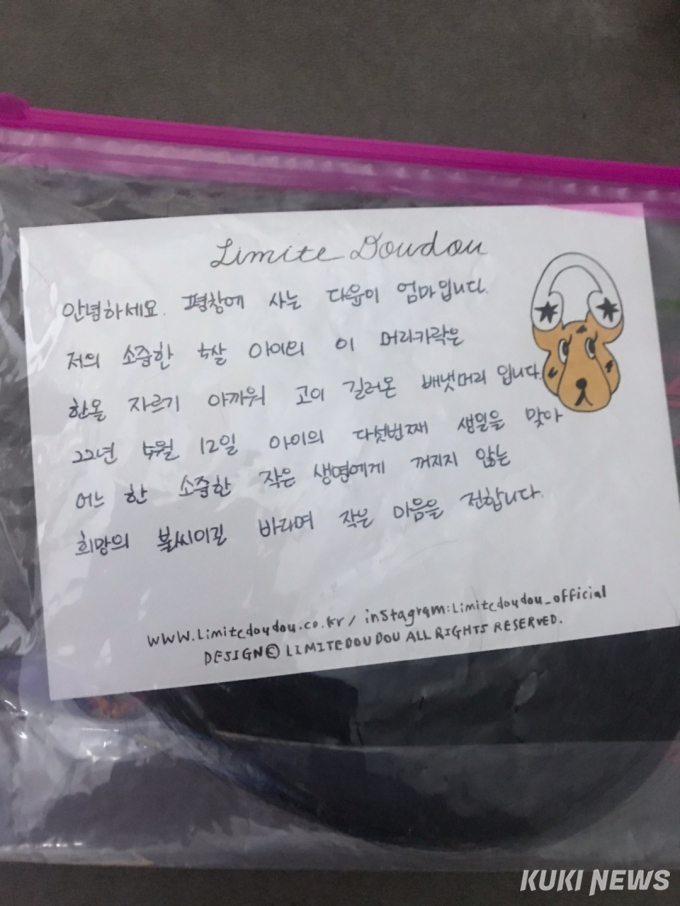 Limite Doudou
안녕하세요. 평창에 사는 다윤이 엄마입니다.
저의 소중한 5살 아이의 이 머리카락은
한올 자르기 아까워 고이 길러온 배냇머리 입니다.
22년 5월 12일 아이의 다섯번째 생일을 맞아
어느 한 소중한 작은 생명에게 꺼지지 않는
희망의 불씨이길 바라며 작은 마음을 전합니다.
www.Limitedoudou.co.kr / instagram:Limitedoudou_official
DESIGN© LIMITEDOUDOU ALL RIGHTS RESERVED.
KUKI NEWS